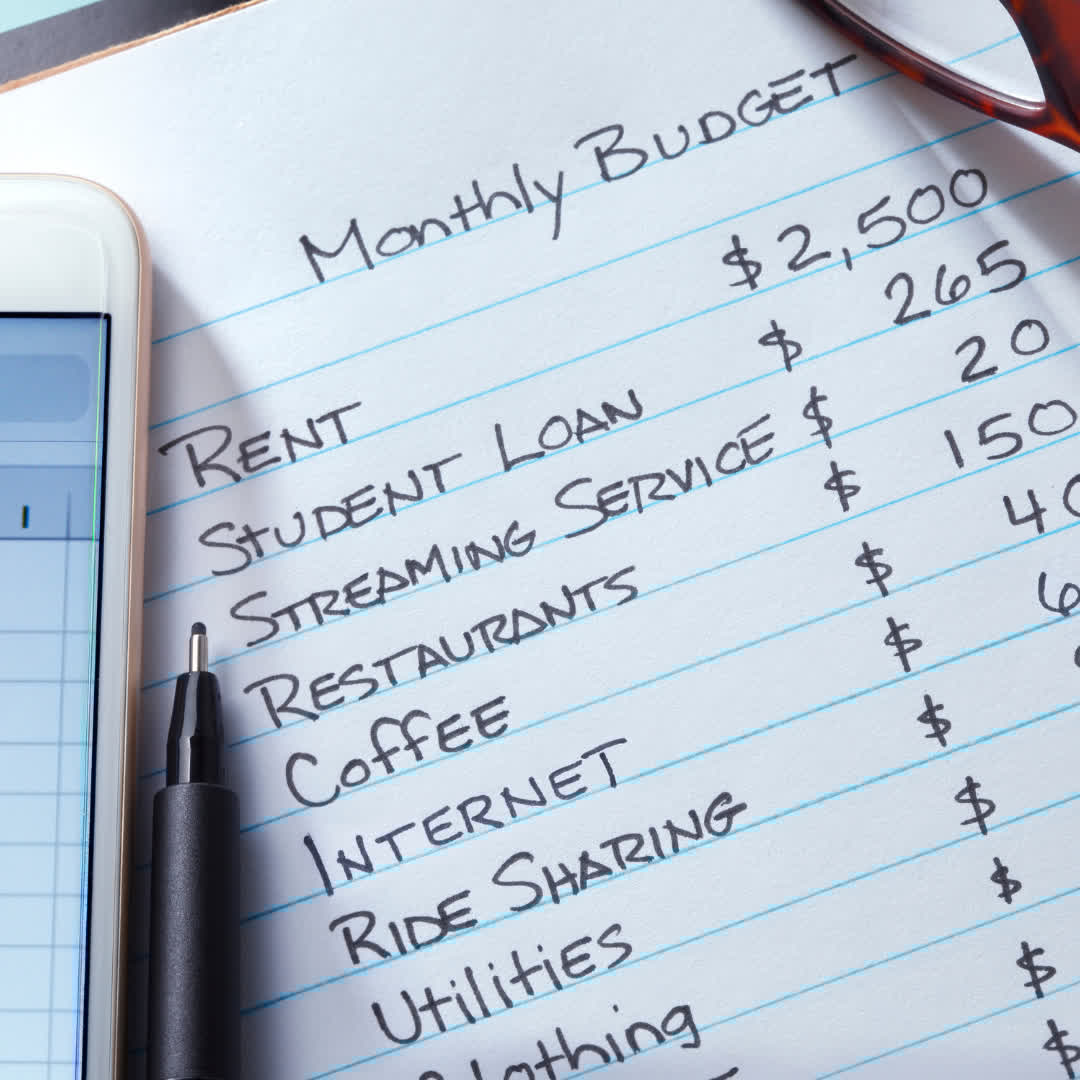 Monthly BUDGET
RENT $2,500
STUDENT LOAN $ 265
STREAMING SERVICE $ 20
RESTAURANTS $ 150
COFFEE $ 40
INTERNET $ 6
RIDE SHARING $
UTILITIES $
Clothing $
$
$